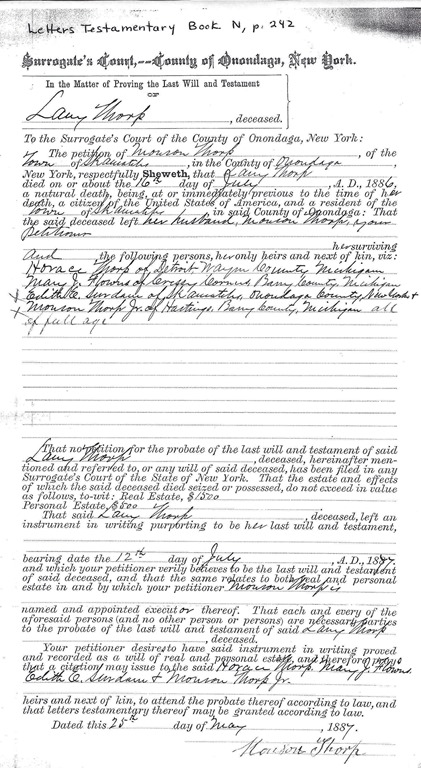 Letters Testamentary Book N, p. 242
Surrogate's Court,--County of Onondaga, New York.
In the Matter of Proving the Last Will and Testament
OF
Lany Thorp, deceased.
To the Surrogate's Court of the County of Onondaga, New York:
The petition of Monson Thorp, of the
Town of Skaneateles, in the County of Onondaga,
New York, respectfully Sheweth, that Lany Thorp
died on or about the 16th day of July, A. D., 1886,
a natural death, being, at or immediately previous to the time of her
death, a citizen of the United States of America, and a resident of the
Town of Skaneateles in said County of Onondaga: That
the said deceased left her husband, Monson Thorp, your
petitioner
her surviving
And the following persons, her only heirs and next of kin, viz:
Horace Thorp of Detroit Wayne County Michigan
Mary J. Flowns of Cressy Corners, Barry County, Michigan
Edith E. Surdam of Skaneateles, Onondaga County, New York &
Monson Thorp Jr. of Hastings, Barry County, Michigan all
of full age
That no petition for the probate of the last will and testament of said
Lany Thorp, deceased, hereinafter men
tioned and referred to, or any will of said deceased, has been filed in any
Surrogate's Court of the State of New York. That the estate and effects
of which the said deceased died seized or possessed, do not exceed in value
as follows, to-wit: Real Estate, $1500
Personal Estate, $500
That said Lany Thorp, deceased, left an
instrument in writing purporting to be her last will and testament,
bearing date the 12th day of July, A. D., 1887,
and which your petitioner verily believes to be the last will and testament
of said deceased, and that the same relates to both real and personal
estate in and by which your petitioner Monson Thorp is
named and appointed executor thereof. That each and every of the
aforesaid persons (and no other person or persons) are necessary parties
to the probate of the last will and testament of said Lany Thorp
, deceased.
Your petitioner desires to have said instrument in writing proved
and recorded as a will of real and personal estate, and therefore prays
that a citation may issue to the said Horace Thorp, Mary J. Flowns
Edith E. Surdam & Monson Thorp Jr.
heirs and next of kin, to attend the probate thereof according to law, and
that letters testamentary thereof may be granted according to law.
Dated this 25th day of May, 1887.
Monson Thorp